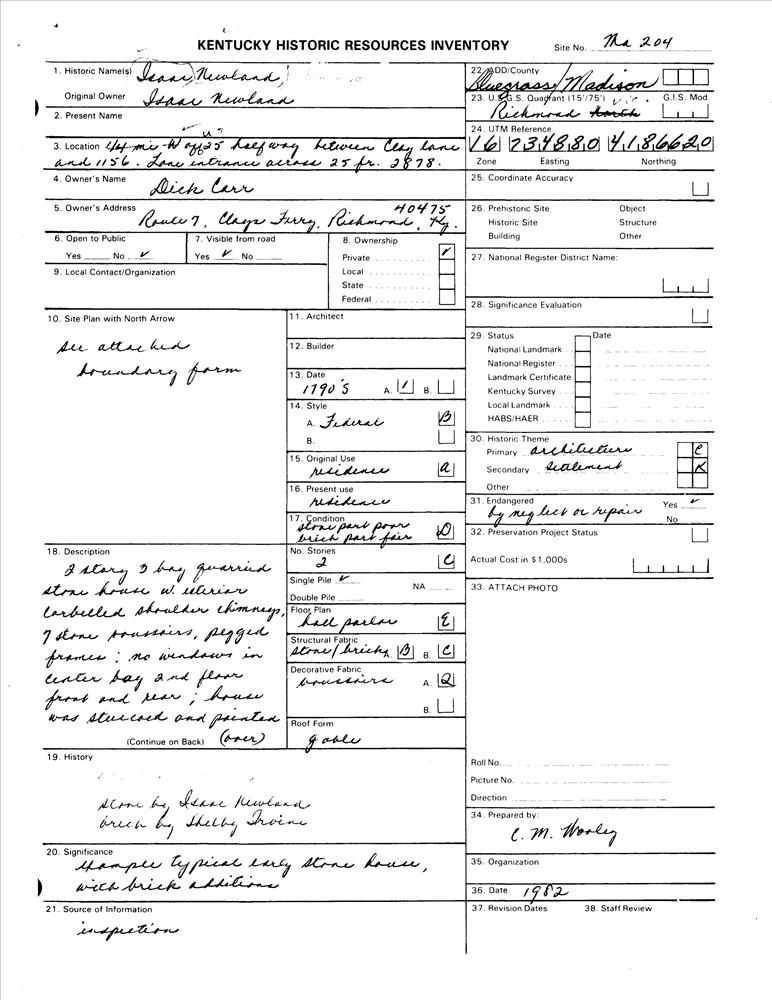 KENTUCKY HISTORIC RESOURCES INVENTORY
Site No. Ma 204
1. Historic Name(s) Isaac Newland,
Original Owner Isaac Newland
2. Present Name
US
3. Location 44 mi W off 25 halfway between Clay lane
and 1156. Lane entrance across 25 fr. 2878.
4. Owner's Name
Dick Carr
5. Owner's Address 40475
Route 7, Clays Ferry, Richmond, Ky.
6. Open to Public
Yes No ✓
7. Visible from road
Yes ✓ No
8. Ownership
Private ✓
Local
State
Federal
9. Local Contact/Organization
10. Site Plan with North Arrow
see attached
boundary form
11. Architect
12. Builder
13. Date
1790'S A. 1 B.
14. Style
A. Federal B
B.
15. Original Use
residence A
16. Present use
residence
17. Condition
stone part poor
brick part fair D
18. Description
2 story 3 bay quarried
stone house w. exterior
corbelled shoulder chimneys,
7 stone voussoirs, pegged
frames; no windows in
center bay 2nd floor
front and rear; house
was stuccoed and painted
(Continue on Back) (over)
No. Stories
2 C
Single Pile ✓ NA
Double Pile
Floor Plan
hall parlor E
Structural Fabric
stone/brick A. B B. C
Decorative Fabric
voussoirs A. Q
B.
Roof Form
gable
19. History
stone by Isaac Newland
brick by Shelby Irvine
20. Significance
example typical early stone house,
with brick additions
21. Source of Information
inspection
22. ADD/County
Bluegrass/Madison
23. U.S.G.S. Quadrant (15'/75') G.I.S. Mod.
Richmond North
24. UTM Reference
16 734880 4186620
Zone Easting Northing
25. Coordinate Accuracy
26. Prehistoric Site Object
Historic Site Structure
Building Other
27. National Register District Name:
28. Significance Evaluation
29. Status Date
National Landmark
National Register
Landmark Certificate
Kentucky Survey
Local Landmark
HABS/HAER
30. Historic Theme
Primary architecture C
Secondary settlement K
Other
31. Endangered Yes ✓
by neglect or repair No
32. Preservation Project Status
Actual Cost in $1,000s
33. ATTACH PHOTO
Roll No.
Picture No.
Direction
34. Prepared by:
C. M. Worley
35. Organization
36. Date 1982
37. Revision Dates 38. Staff Review